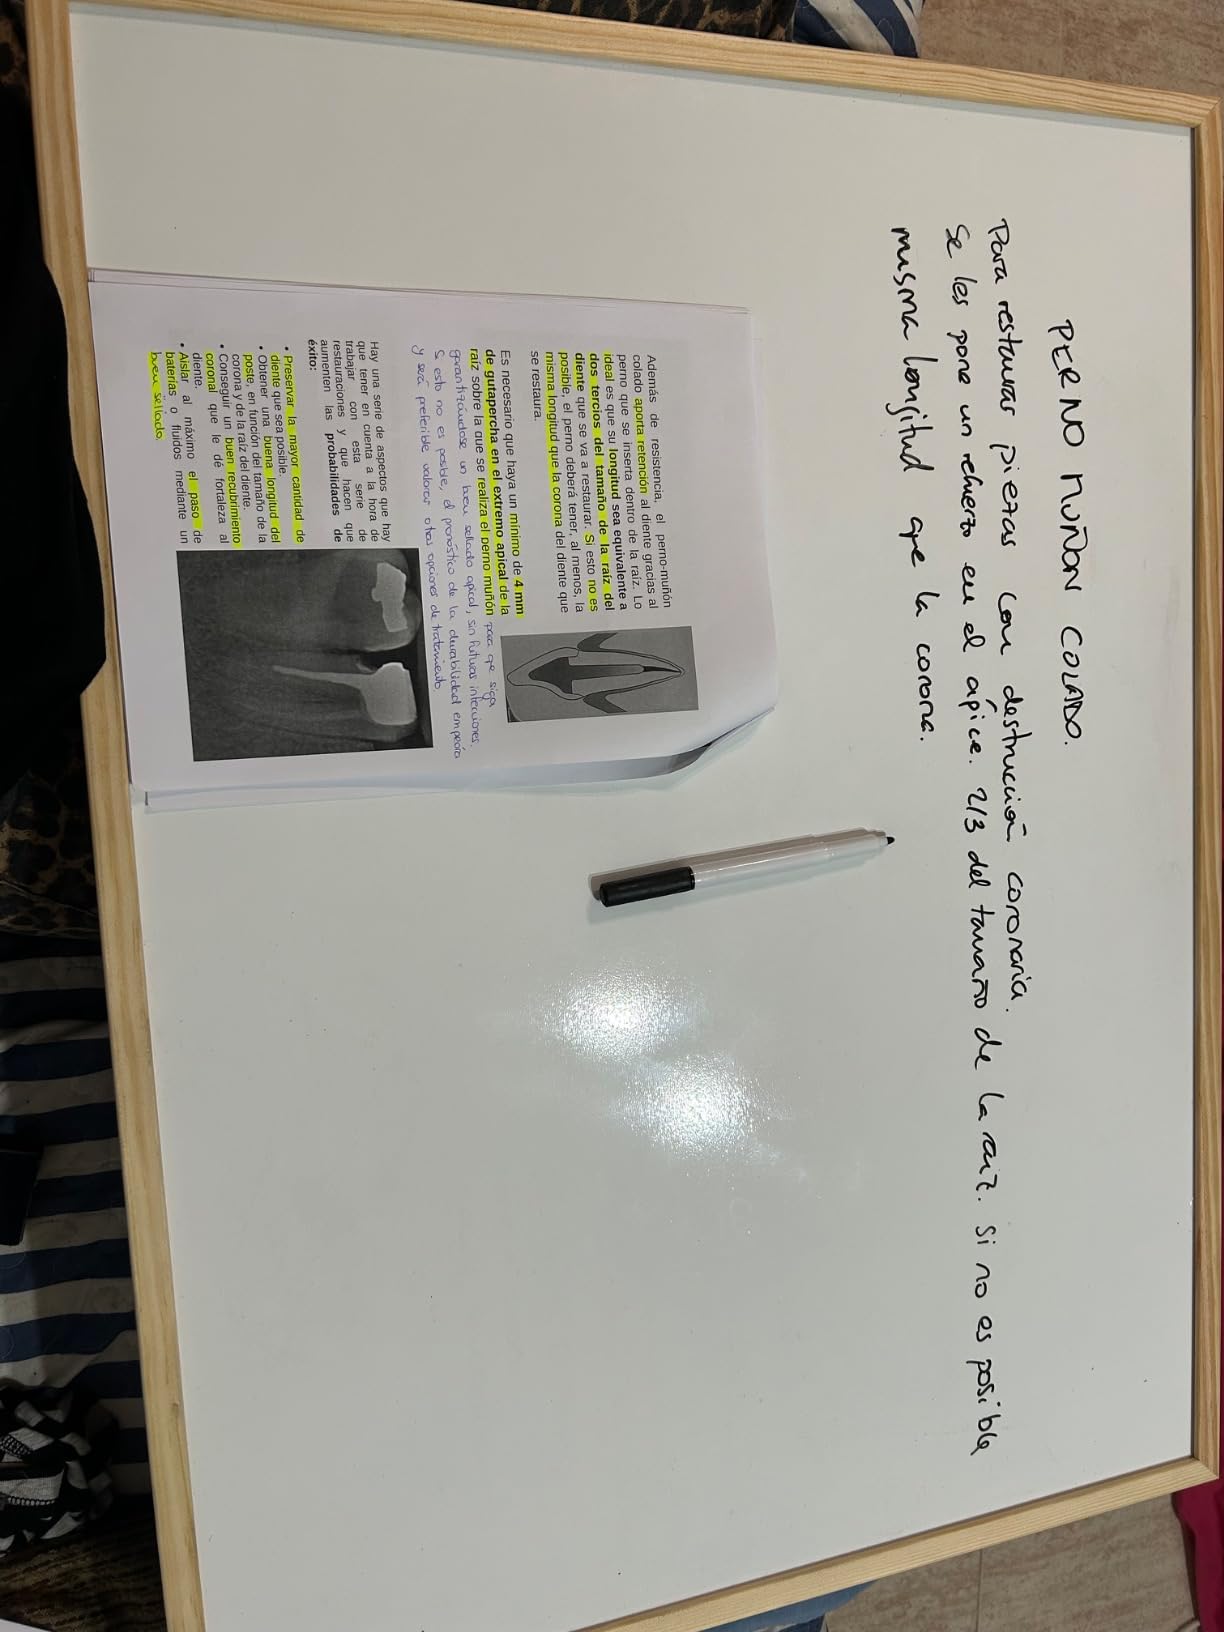 PERNO MUÑON COLADO.
Para restauras piezas con destrucción coronaria.
Se les pone un refuerzo en el ápice. 2/3 del tamaño de la raiz. Si no es posible
misma longitud que la corona.
Además de resistencia, el perno-muñón
colado aporta retención al diente gracias al
perno que se inserta dentro de la raíz. Lo
ideal es que su longitud sea equivalente a
dos tercios del tamaño de la raíz del
diente que se va a restaurar. Si esto no es
posible, el perno deberá tener, al menos, la
misma longitud que la corona del diente que
se restaura.
Es necesario que haya un mínimo de 4 mm
de gutapercha en el extremo apical de la
raíz sobre la que se realiza el perno muñón para que siga
garantizándose un buen sellado apical, sin futuras infecciones.
Si esto no es posible, el pronóstico de la durabilidad empeora
y será preferible valorar otras opciones de tratamiento
Hay una serie de aspectos que hay
que tener en cuenta a la hora de
trabajar con esta serie de
restauraciones y que hacen que
aumenten las probabilidades de
éxito:
• Preservar la mayor cantidad de
diente que sea posible.
• Obtener una buena longitud del
poste, en función del tamaño de la
corona y de la raíz del diente.
• Conseguir un buen recubrimiento
coronal que le dé fortaleza al
diente.
• Aislar al máximo el paso de
baterías o fluidos mediante un
buen sellado.